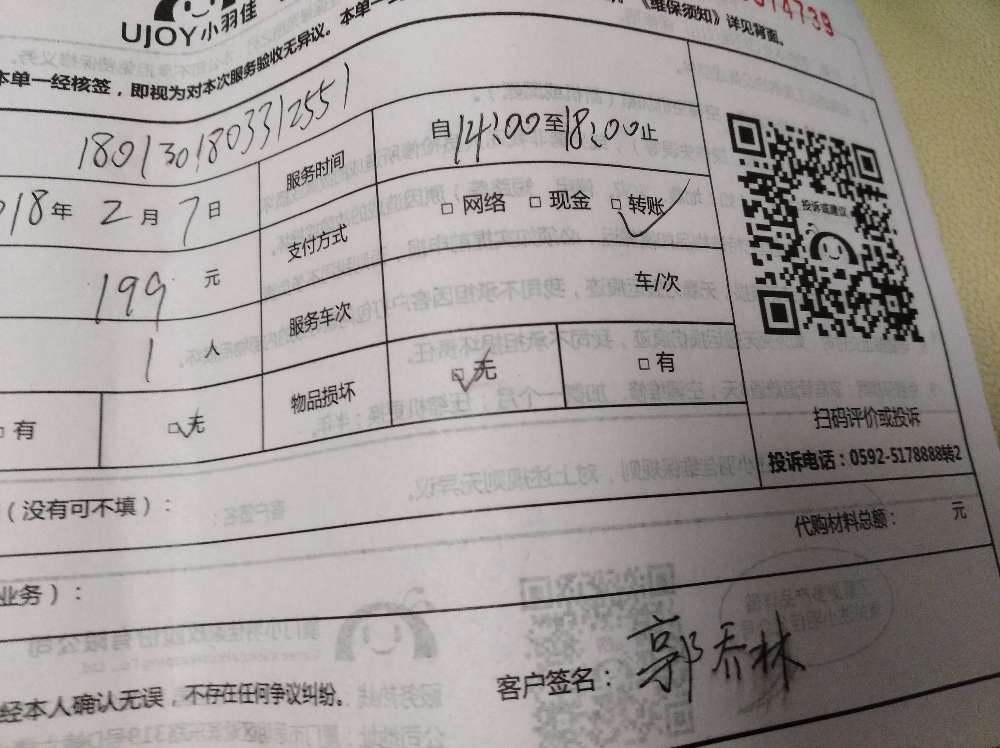 UJOY小羽佳
14739
《维保须知》详见背面。
本单一经核签，即视为对本次服务验收无异议。本单一
1801301803312551
服务时间 自14:00至18:00止
018年2月7日
支付方式 □网络 □现金 □转账
199元
服务车次 车/次
1人
物品损坏 □无 □有
□有 □无
投诉或建议
扫码评价或投诉
投诉电话：0592-5178888转2
（没有可不填）：
代购材料总额： 元
业务）：
经本人确认无误，不存在任何争议纠纷。
客户签名：郭乔林